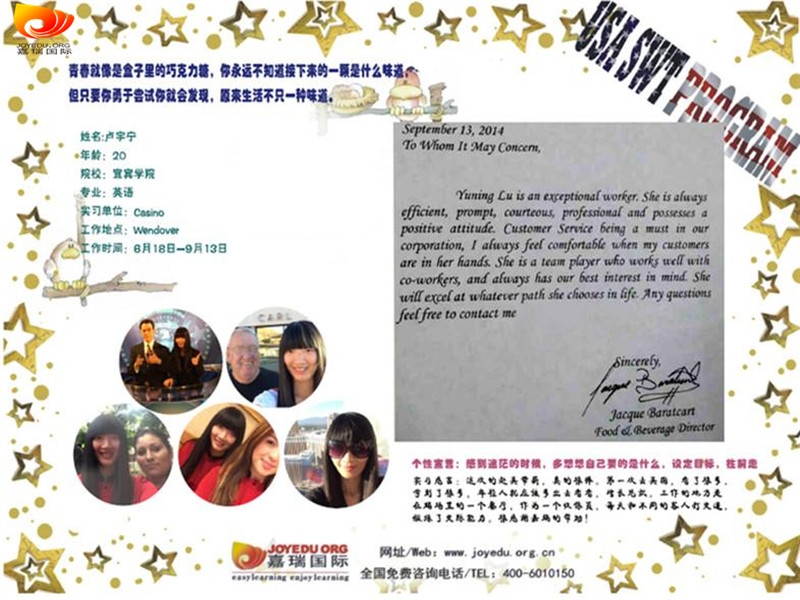 JOYEDU.ORG
嘉瑞国际
USA SWT PROGRAM
青春就像是盒子里的巧克力糖，你永远不知道接下来的一颗是什么味道。
但只要你勇于尝试你就会发现，原来生活不只一种味道。
姓名:卢宇宁
年龄：20
院校：宜宾学院
专业：英语
实习单位：Casino
工作地点：Wendover
工作时间：6月18日—9月13日
September 13, 2014
To Whom It May Concern,
Yuning Lu is an exceptional worker. She is always
efficient, prompt, courteous, professional and possesses a
positive attitude. Customer Service being a must in our
corporation, I always feel comfortable when my customers
are in her hands. She is a team player who works well with
co-workers, and always has our best interest in mind. She
will excel at whatever path she chooses in life. Any questions
feel free to contact me
Sincerely,
Jacque Baratcart
Jacque Baratcart
Food & Beverage Director
CARL
个性宣言：感到迷茫的时候，多想想自己要的是什么，设定目标，往前走
实习感言：这次的赴美带薪，真的很棒。第一次去美国，看了很多，
学到了很多，年轻人就应该多出去看看，增长见识。工作的地方是
在赌场里的一个餐厅，作为一个
每天和不同的客人打交道，
JOYEDU.ORG
嘉瑞国际
easylearning enjoylearning
网址/Web：www.joyedu.org.cn
全国免费咨询电话/TEL：400-6010150